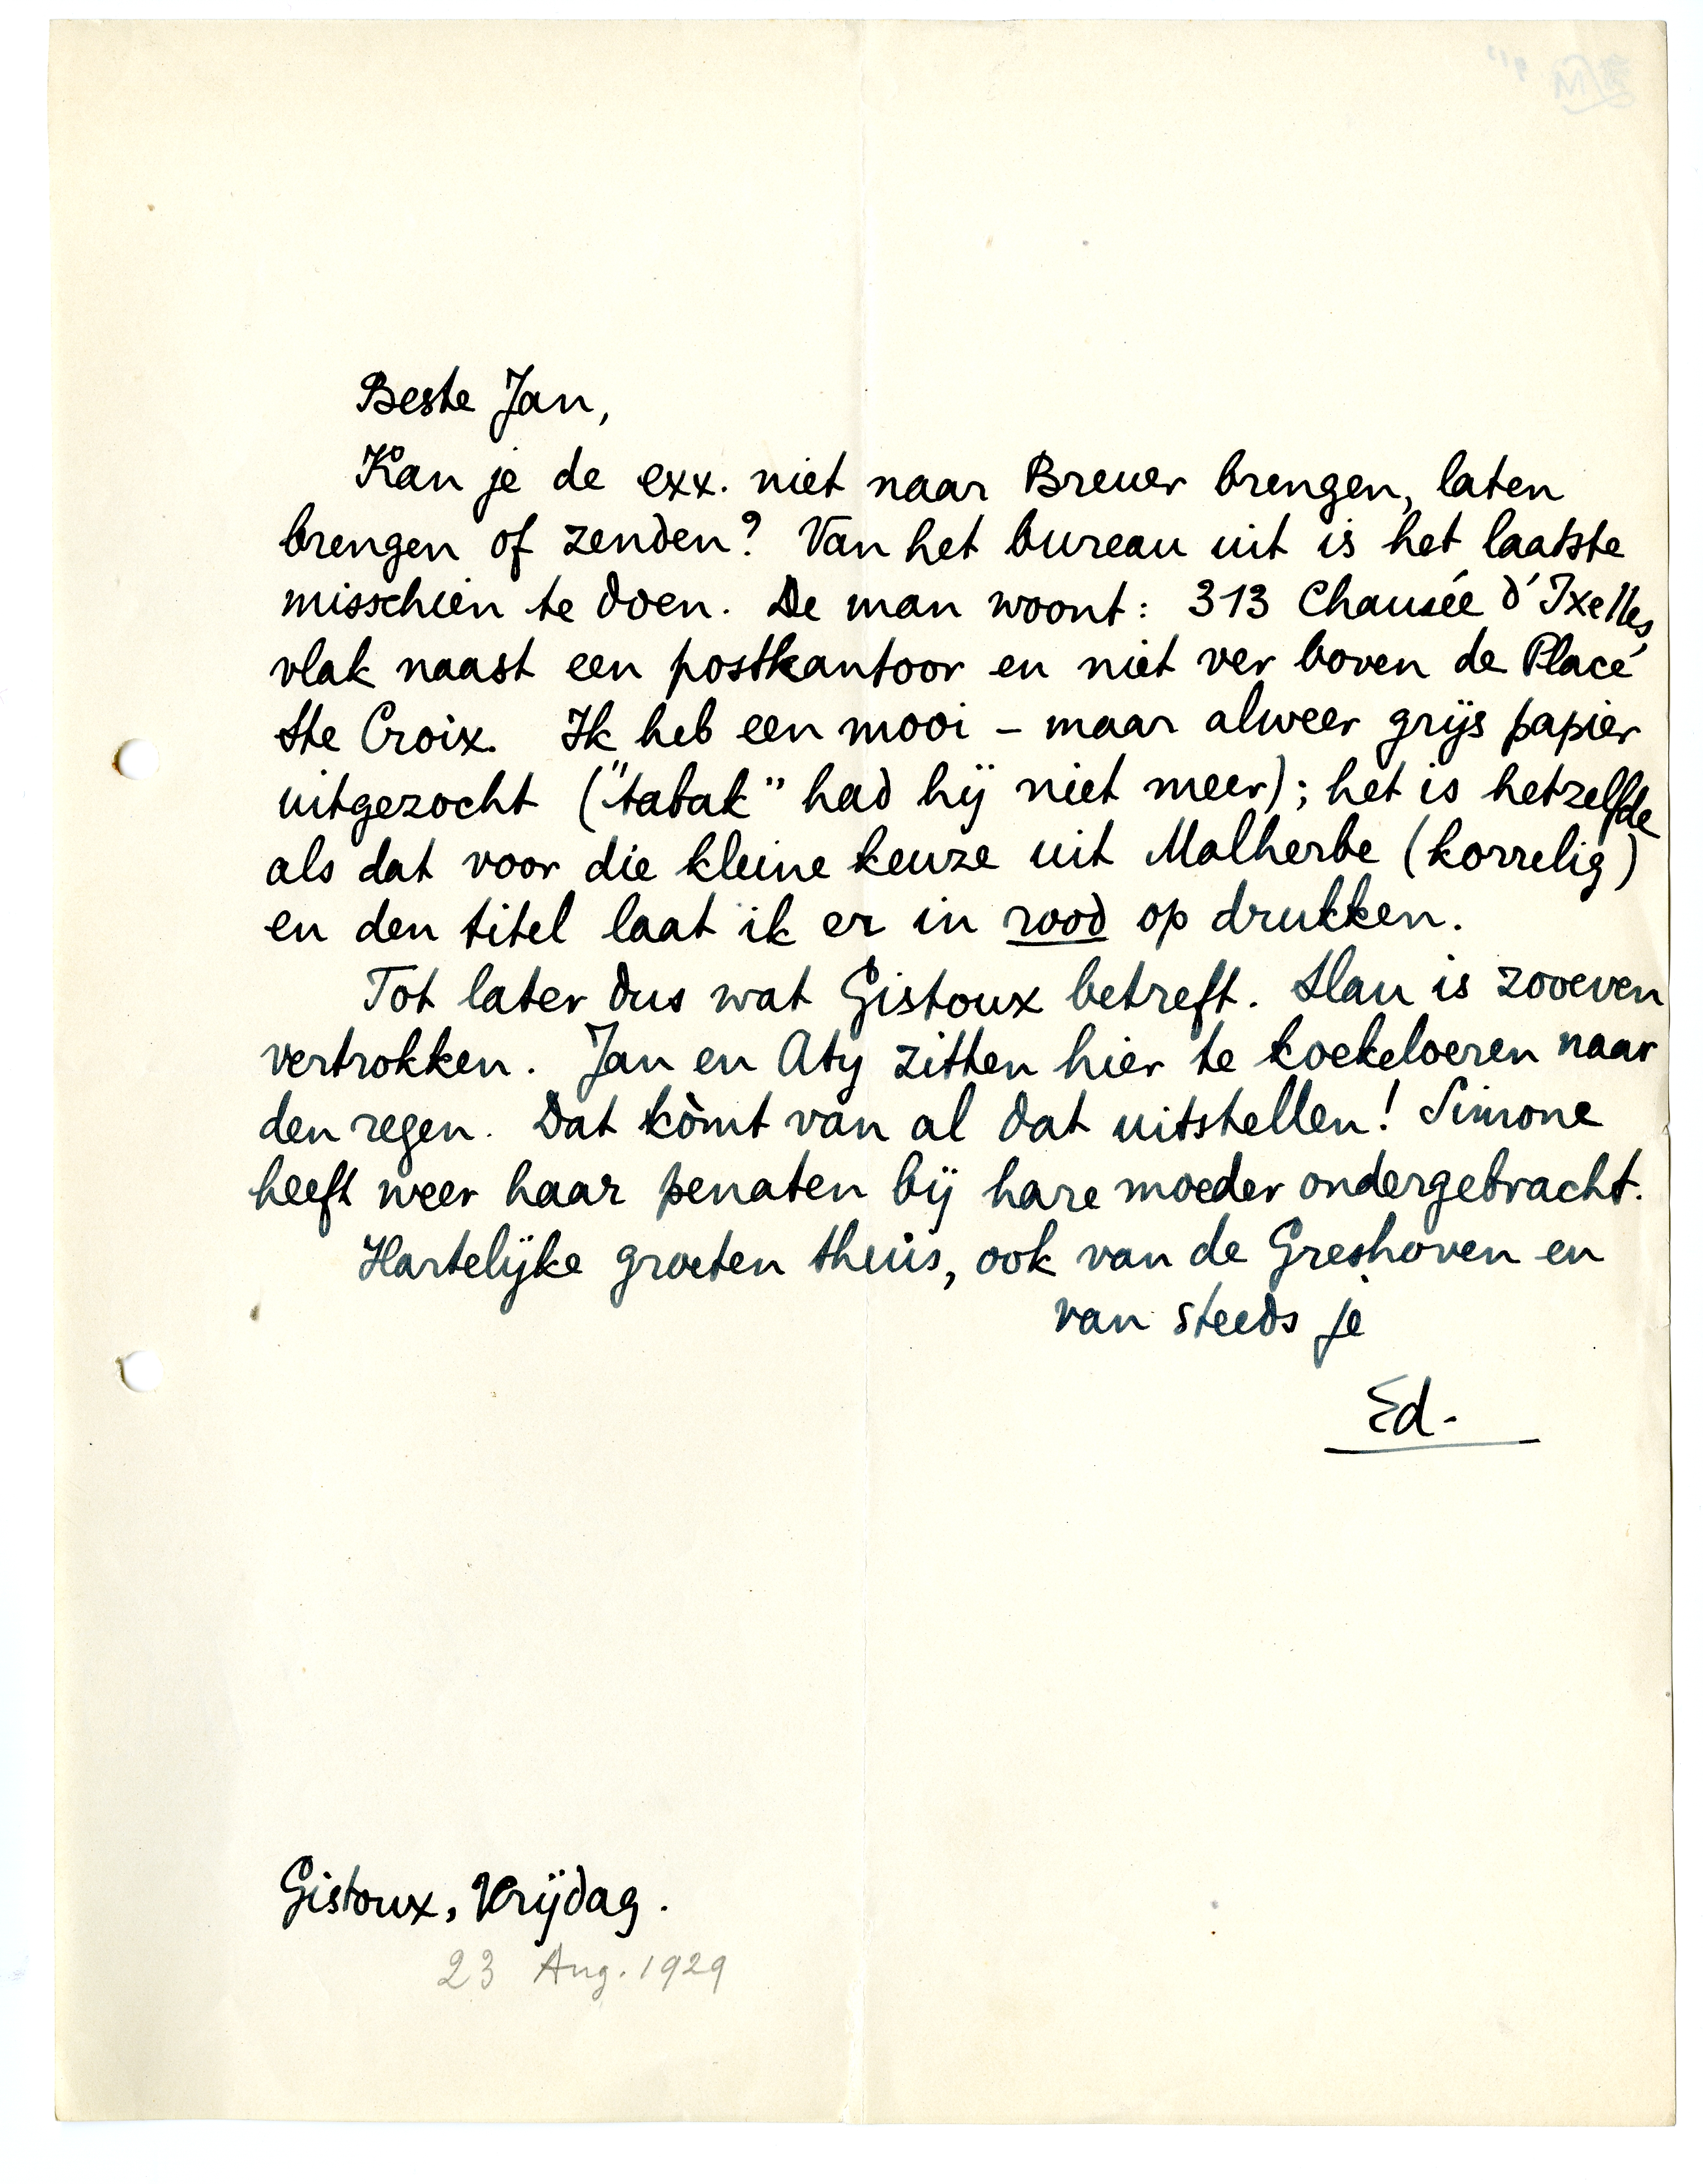 Beste Jan,
Kan je de exx. niet naar Breuer brengen, laten
brengen of zenden? Van het bureau uit is het laatste
misschien te doen. De man woont: 313 Chausée d'Ixelles,
vlak naast een postkantoor en niet ver boven de Place
Ste Croix. Ik heb een mooi – maar alweer grijs papier
uitgezocht ("tabak" had hij niet meer); het is hetzelfde
als dat voor die kleine keuze uit Malherbe (korrelig)
en den titel laat ik er in rood op drukken.
Tot later dus wat Gistoux betreft. Slau is zooeven
vertrokken. Jan en Aty zitten hier te koekeloeren naar
den regen. Dat kòmt van al dat uitstellen! Simone
heeft weer haar penaten bij hare moeder ondergebracht.
Hartelijke groeten thuis, ook van de Greshoven en
van steeds je
Ed.
Gistoux, Vrijdag.
23 Aug. 1929